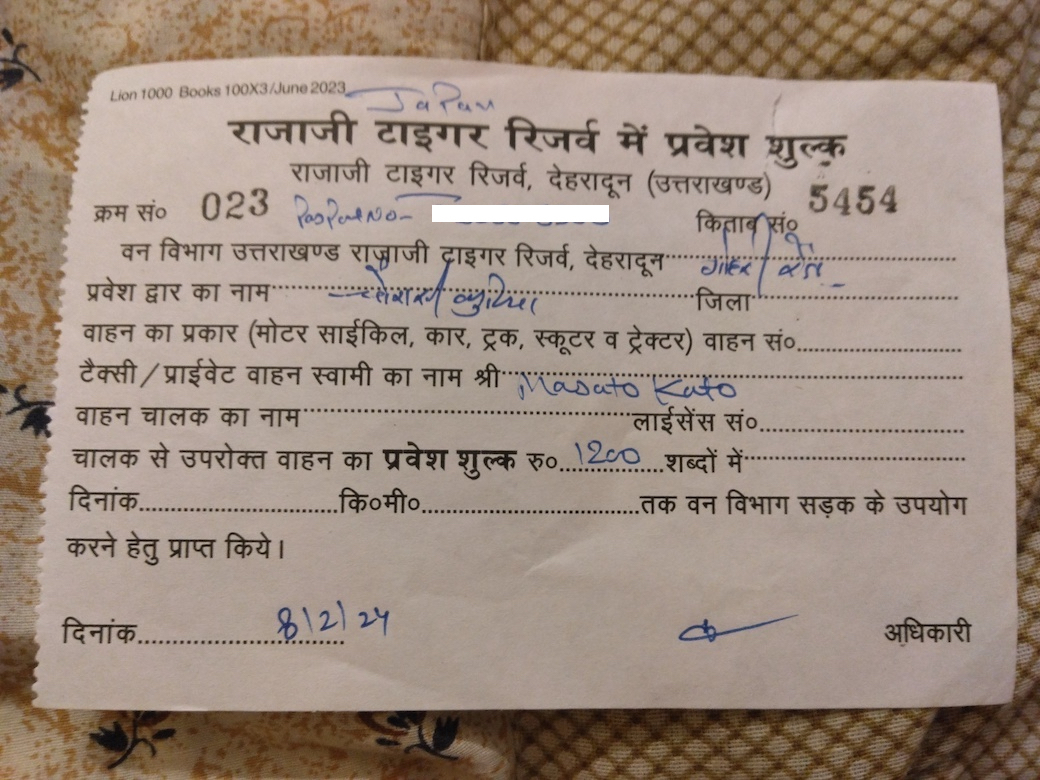 Lion 1000 Books 100X3/June 2023
JaPan
राजाजी टाइगर रिजर्व में प्रवेश शुल्क
राजाजी टाइगर रिजर्व, देहरादून (उत्तराखण्ड)
क्रम सं० 023 PasPort NO- किताब सं० 5454
वन विभाग उत्तराखण्ड राजाजी टाइगर रिजर्व, देहरादून
प्रवेश द्वार का नाम चौरासी कुटिया जिला
वाहन का प्रकार (मोटर साईकिल, कार, ट्रक, स्कूटर व ट्रेक्टर) वाहन सं०
टैक्सी/प्राईवेट वाहन स्वामी का नाम श्री Masato Kato
वाहन चालक का नाम लाईसेंस सं०
चालक से उपरोक्त वाहन का प्रवेश शुल्क रु० 1200 शब्दों में
दिनांक कि०मी० तक वन विभाग सड़क के उपयोग
करने हेतु प्राप्त किये।
दिनांक 8/2/24 अधिकारी